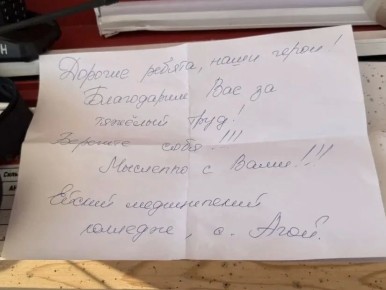 Дорогие ребята, наши герои!
Благодарим Вас за
тяжёлый труд!
Берегите себя!!!
Мысленно с Вами!!!
Ейский медицинский
колледж, с. Агой.